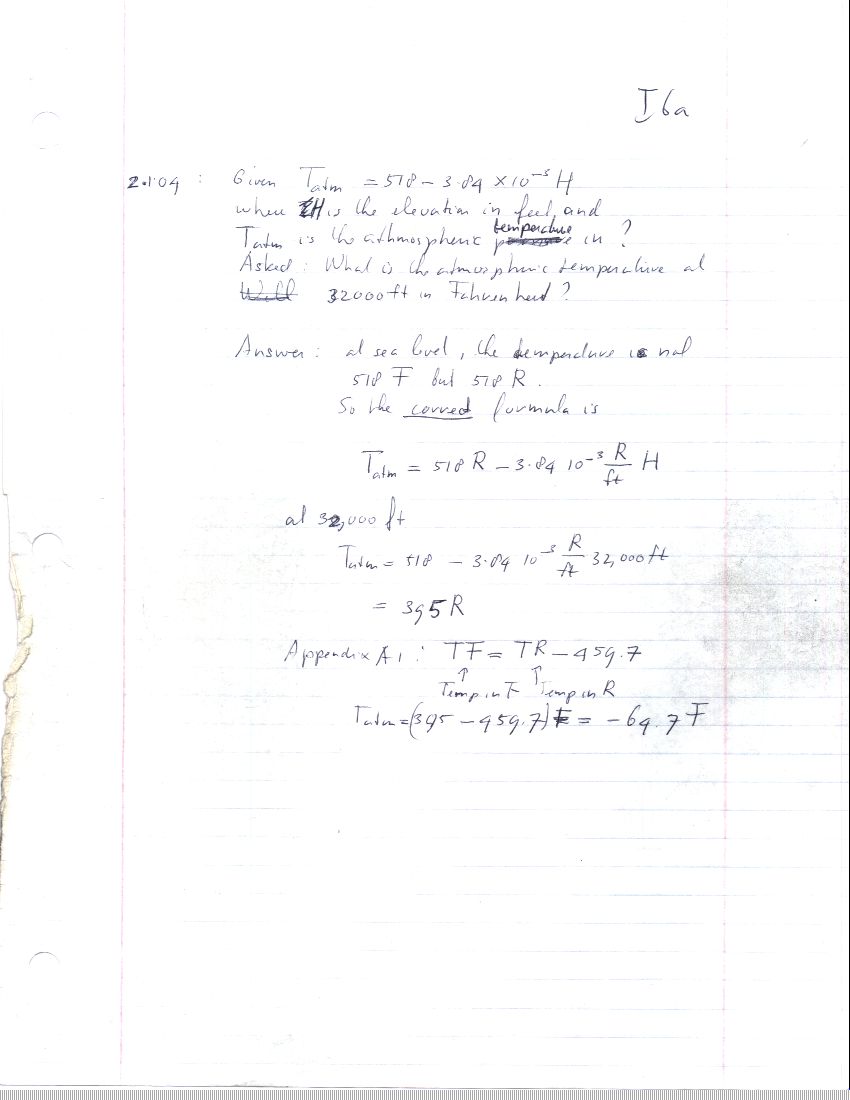 I6a
2.104 : Given Tatm = 518 - 3.84 ×10⁻³ H
where H is the elevation in feet, and
Tatm is the athmospheric temperature in ?
Asked: What is the atmospheric temperature at
32000 ft in Fahrenheid ?
Answer: at sea level, the temperature is not
518 F but 518 R.
So the correct formula is
Tatm = 518 R - 3.84 10⁻³ R/ft H
at 32,000 ft
Tatm = 518 - 3.84 10⁻³ R/ft 32,000 ft
= 395 R
Appendix A1: TF = TR - 459.7
↑ Temp in F ↑ Temp in R
Tatm = (395 - 459.7) F = - 64.7 F